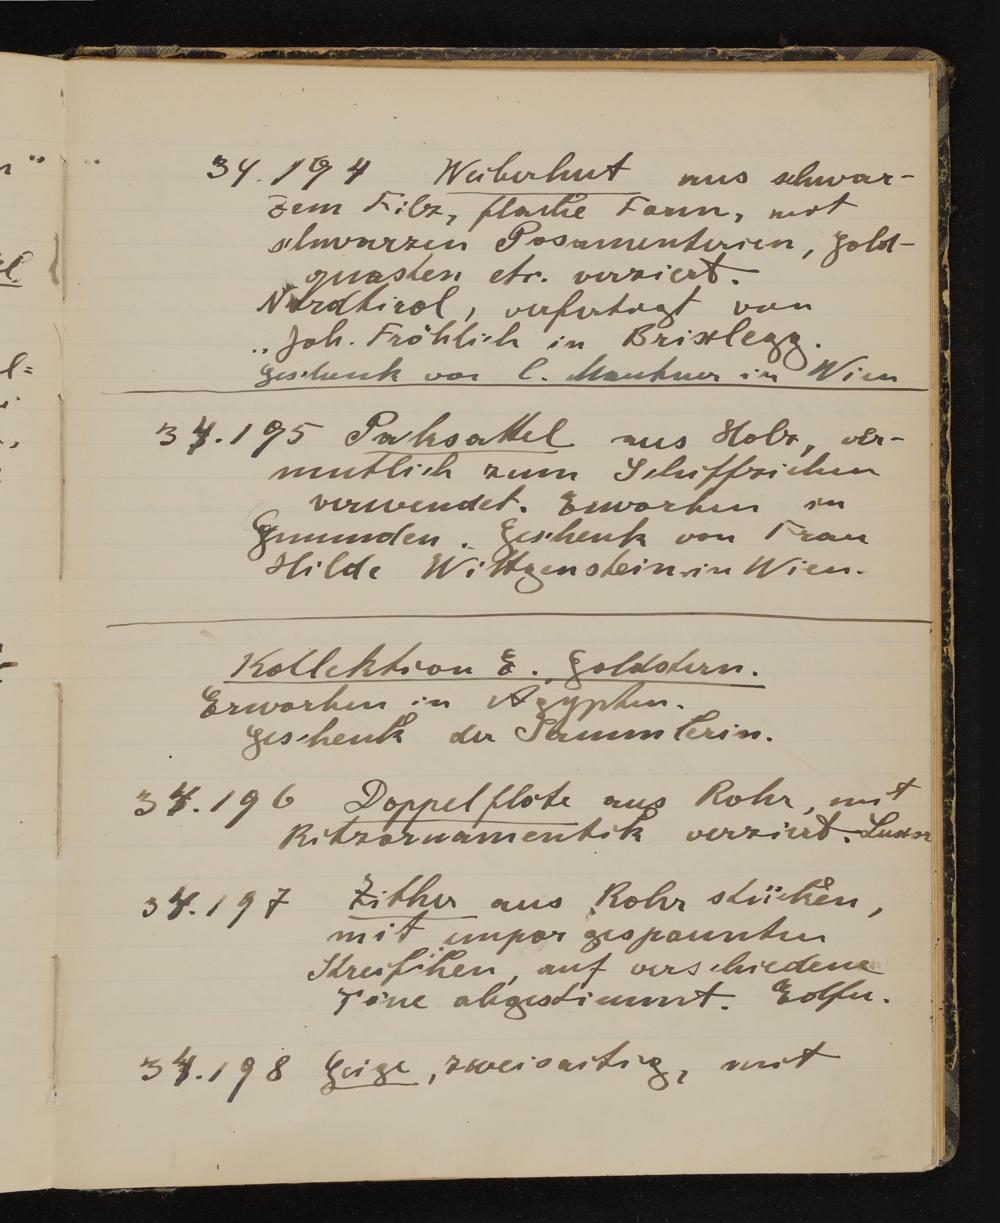 34.194 Weiberhut aus schwar-
zem Filz, flache Form, mit
schwarzen Posamenterien, Gold-
quasten etc. verziert.
Nordtirol, verfertigt von
Joh. Fröhlich in Brixlegg.
Geschenk von C. Mautner in Wien
34.195 Paksattel aus Holz, ver-
mutlich zum Schiffziehen
verwendet. Erworben in
Gmunden. Geschenk von Frau
Hilde Wittgenstein in Wien.
Kollektion E. Goldstern.
Erworben in Ägypten.
Geschenk der Sammlerin.
34.196 Doppelflöte aus Rohr, mit
Ritzornamentik verziert. Luxor
34.197 Zither aus Rohrstücken,
mit empor gespannten
Streifchen, auf verschiedene
Töne abgestimmt.
34.198 Geige, zweisaitig, mit